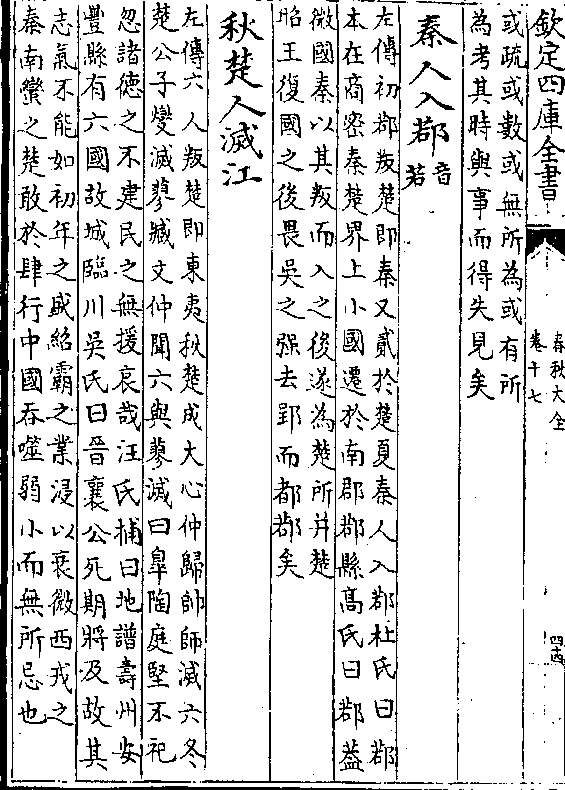 欽定四庫全書
春秋大全
卷十七
四十四
或疏或數或無所為或有所
為考其時與事而得失見矣
秦人入鄀音若
左傳初鄀叛楚即秦又貳於楚夏秦人入鄀杜氏曰鄀
本在商密秦楚界上小國遷於南郡鄀縣高氏曰鄀蓋
微國秦以其叛而入之後遂為楚所并楚
昭王復國之後畏吳之强去郢而都鄀矣
秋楚人滅江
左傳六人叛楚即東夷秋楚成大心仲歸帥師滅六冬
楚公子燮滅蓼臧文仲聞六與蓼滅曰臯陶庭堅不祀
忽諸徳之不建民之無援哀哉汪氏補曰地譜壽州安
豐縣有六國故城臨川吳氏曰晉襄公死期將及故其
志氣不能如初年之盛紹霸之業浸以衰微西戎之
秦南蠻之楚敢於肆行中國吞噬弱小而無所忌也